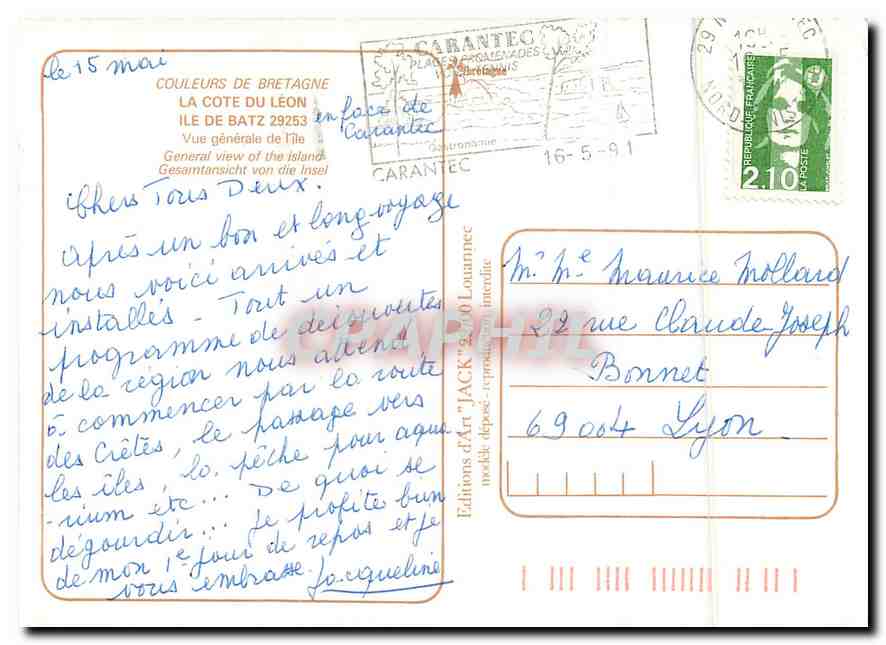 le 15 mai
COULEURS DE BRETAGNE
LA COTE DU LÉON
ILE DE BATZ 29253
Vue générale de l'île
General view of the island
Gesamtansicht von die Insel
en face de
Carantec
Chers Tous Deux.
Après un bon et long voyage
nous voici arrivés et
installés - Tout un
programme de découvertes
de la région nous attend
à commencer par la route
des Crêtes, le passage vers
les îles, la pêche pour aqua
-rium etc... De quoi se
dégourdir... Je profite bien
de mon 1e jour de repos et je
vous embrasse. Jacqueline
Editions d'Art "JACK" Louannec
modèle déposé - reproduction interdite
CARANTEC
PLAGES PROMENADES
Bretagne
Gastronomie
CARANTEC
16-5-91
29
NORD
REPUBLIQUE FRANÇAISE
2,10
LA POSTE
Mr Me Maurice Mollard
22 rue Claude-Joseph
Bonnet
69004 Lyon
CPAPHIL